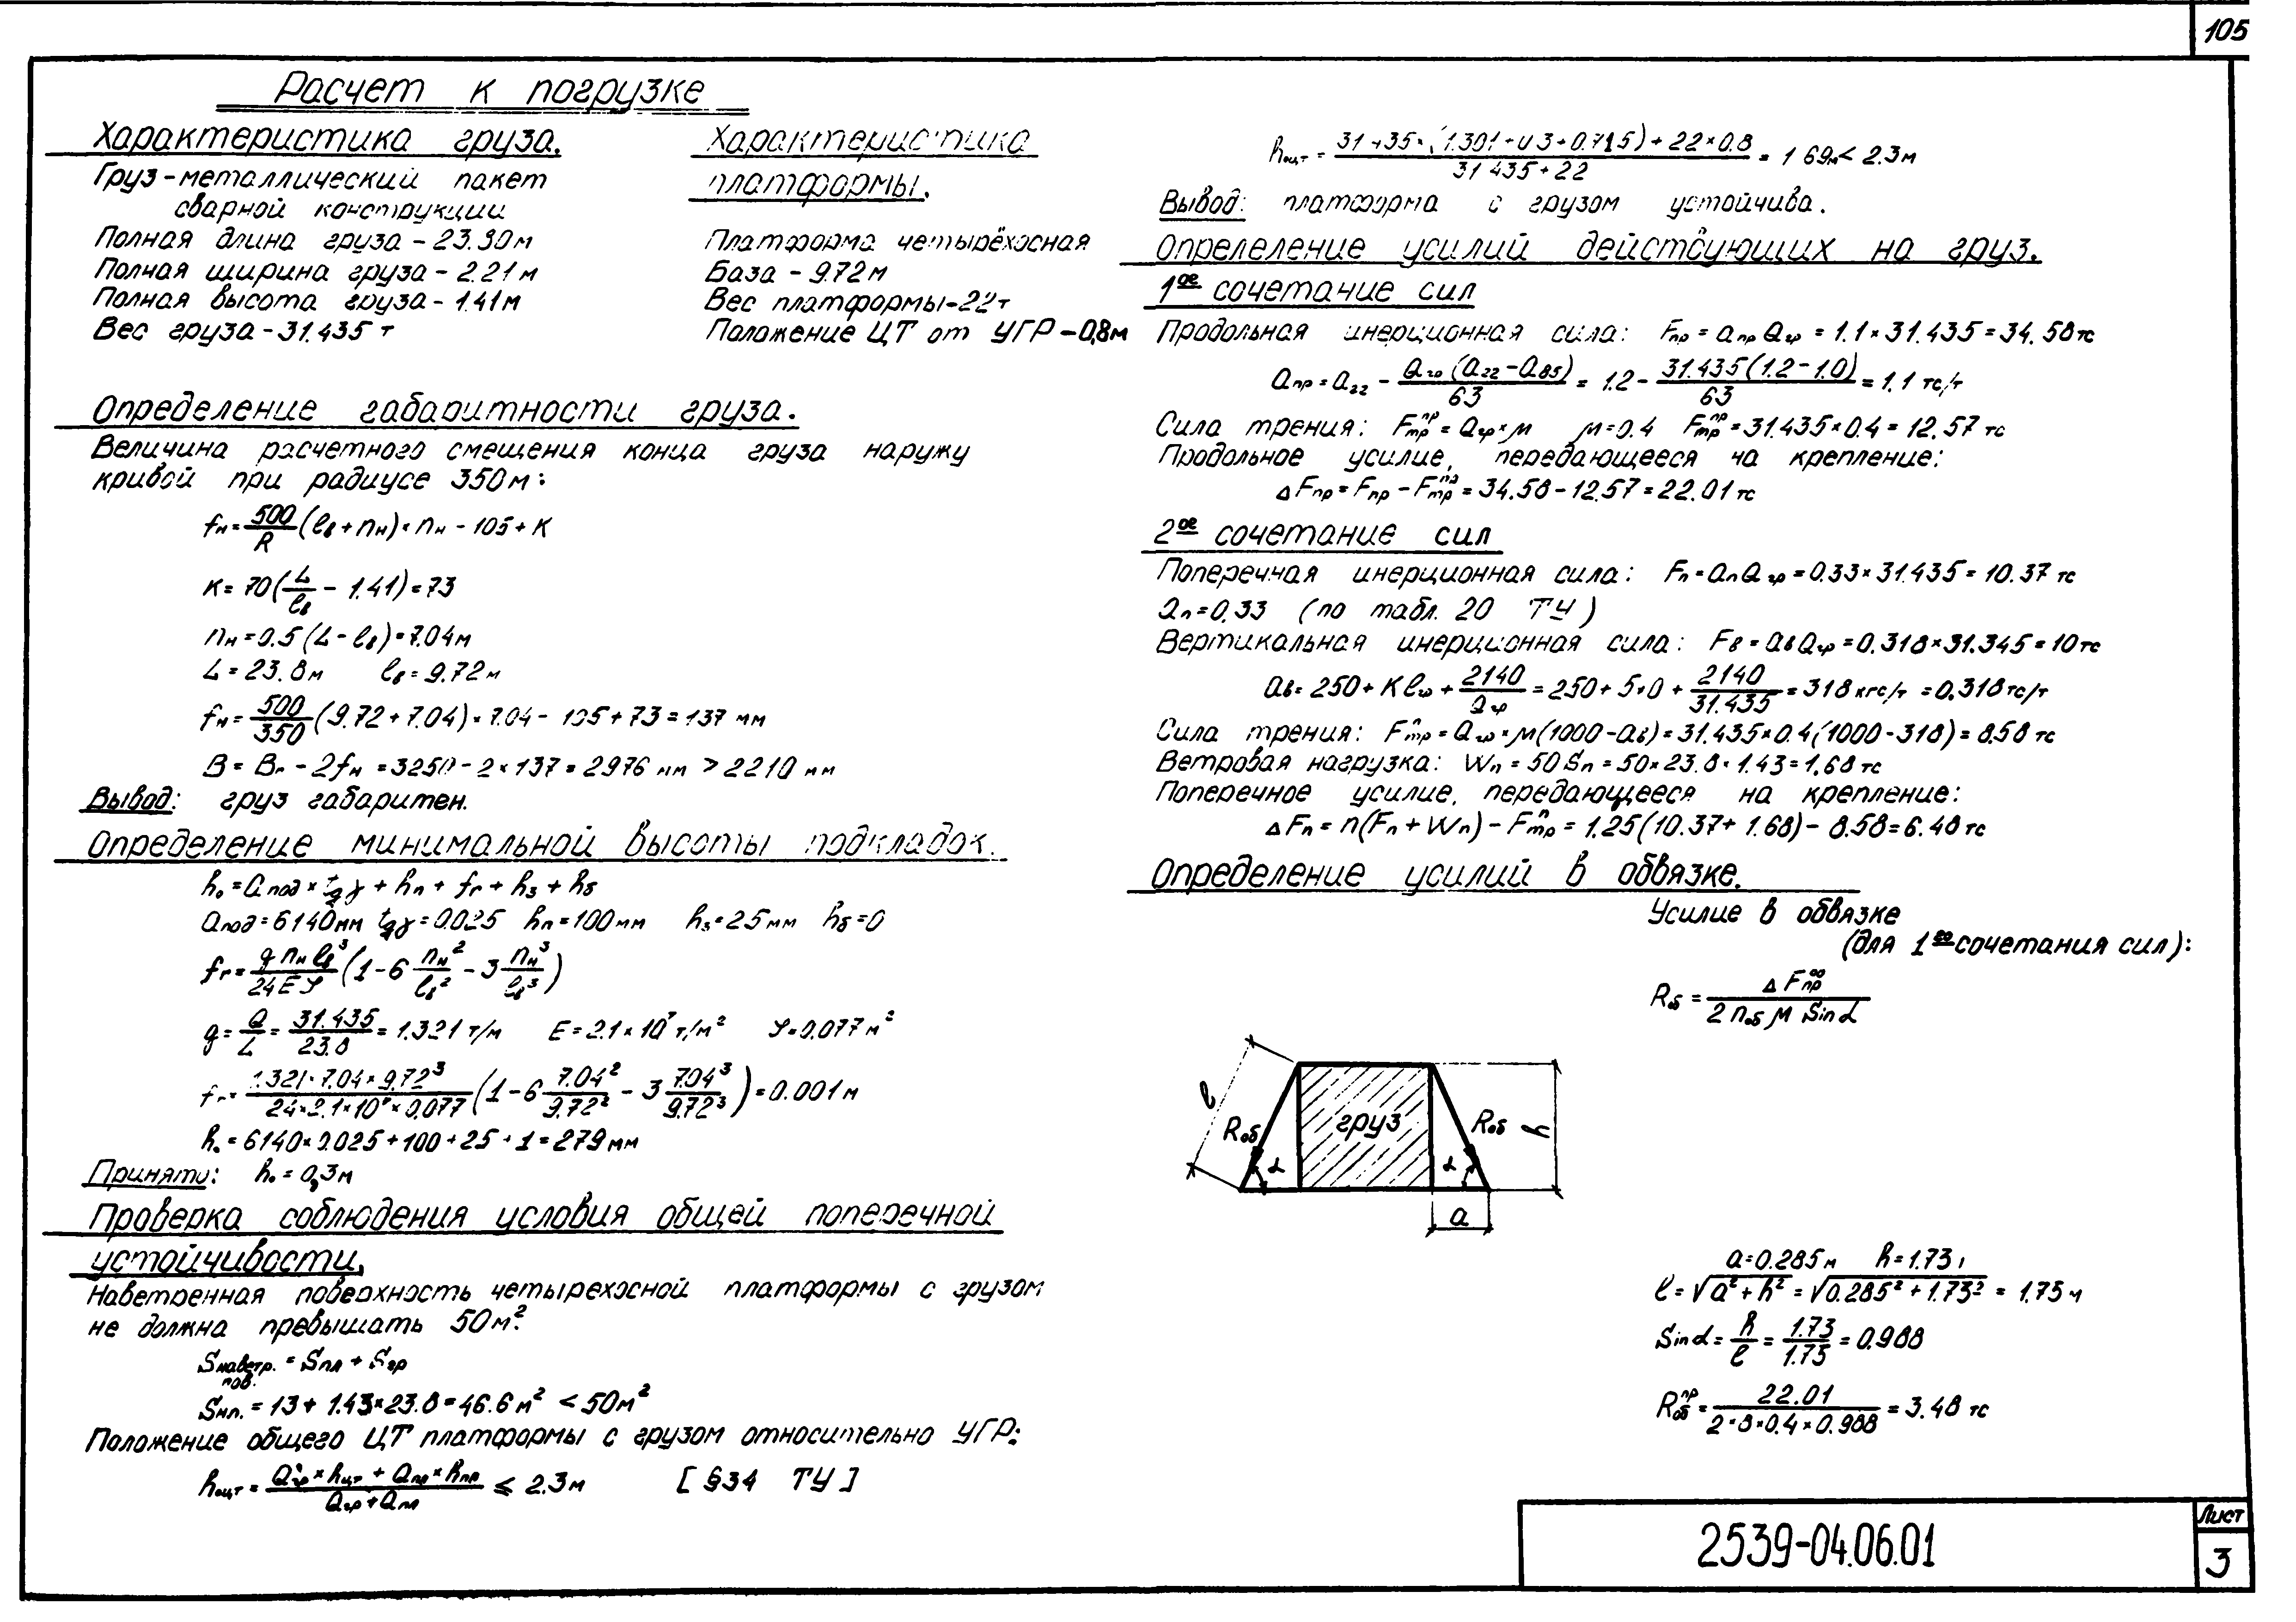 105
Расчет к погрузке
Характеристика груза.
Груз - металлический пакет
сварной конструкции
Полная длина груза - 23.90м
Полная ширина груза - 2.21м
Полная высота груза - 1.41м
Вес груза - 31.435 т
Характеристика
платформы.
Платформа четырёхосная
База - 9.72м
Вес платформы - 22т
Положение ЦТ от УГР - 0,8м
Определение габаритности груза.
Величина расчетного смещения конца груза наружу
кривой при радиусе 350м:
fн = 500/R (lв + nн) × nн - 105 + K
K = 70(L/lв - 1.41) = 73
nн = 0.5 (L - lв) = 7.04м
L = 23.8м lв = 9.72м
fн = 500/350 (9.72 + 7.04) × 7.04 - 105 + 73 = 137 мм
B = Bг - 2fн = 3250 - 2 × 137 = 2976 мм > 2210 мм
Вывод: груз габаритен.
Определение минимальной высоты подкладок.
h₀ = aпод × tgγ + hп + fг + hз + hб
aпод = 6140мм tgγ = 0.025 hп = 100мм hз = 25мм hб = 0
fг = g nн lв³ / 24EJ (1 - 6 nн²/lв² - 3 nн³/lв³)
g = Q/L = 31.435/23.8 = 1.321 т/м E = 2.1 × 10⁷ т/м² J = 0.077 м²
fг = 1.321 × 7.04 × 9.72³ / 24 × 2.1 × 10⁷ × 0.077 (1 - 6 7.04²/9.72² - 3 7.04³/9.72³) = 0.001м
h₀ = 6140 × 0.025 + 100 + 25 + 1 = 279мм
Принято: h₀ = 0,3м
Проверка соблюдения условия общей поперечной
устойчивости.
Наветренная поверхность четырехосной платформы с грузом
не должна превышать 50м².
Sнаветр. пов. = Sпл + Sгр
Sнп. = 13 + 1.43 × 23.8 = 46.6м² < 50м²
Положение общего ЦТ платформы с грузом относительно УГР:
hоцт = Qгр × hцт + Qпр × hпр / Qгр + Qпл ≤ 2.3м [§34 ТУ]
hоцт = 31 435 × (1.301 + 0.3 + 0.715) + 22 × 0.8 / 31 435 + 22 = 1 69м < 2.3м
Вывод: платформа с грузом устойчива.
Определение усилий действующих на груз.
1ое сочетание сил
Продольная инерционная сила: Fпр = aпр Qгр = 1.1 × 31.435 = 34.58тс
aпр = a22 - Qгр (a22 - a85) / 63 = 1.2 - 31.435 (1.2 - 1.0) / 63 = 1.1 тс/т
Сила трения: Fтрпр = Qгр × м м = 0.4 Fтрпр = 31.435 × 0.4 = 12.57 тс
Продольное усилие, передающееся на крепление:
ΔFпр = Fпр - Fтрпр = 34.58 - 12.57 = 22.01 тс
2ое сочетание сил
Поперечная инерционная сила: Fп = aп Qгр = 0.33 × 31.435 = 10.37 тс
aп = 0.33 (по табл. 20 ТУ)
Вертикальная инерционная сила: Fв = aв Qгр = 0.318 × 31.345 = 10тс
aв = 250 + K lгр + 2140/Qгр = 250 + 5·0 + 2140/31.435 = 318 кгс/т = 0.318тс/т
Сила трения: Fтрп = Qгр × м(1000 - aв) = 31.435 × 0.4(1000 - 318) = 8.58 тс
Ветровая нагрузка: Wп = 50 Sп = 50 × 23.8 × 1.43 = 1.68 тс
Поперечное усилие, передающееся на крепление:
ΔFп = n(Fп + Wп) - Fтрп = 1.25(10.37 + 1.68) - 8.58 = 6.48 тс
Определение усилий в обвязке.
Усилие в обвязке
(для 1го сочетания сил):
Rоб = ΔFпр / 2 nоб м Sin α
l
Rоб
α
груз
Rоб
α
h
a
a = 0.285м h = 1.73
l = √a² + h² = √0.285² + 1.73² = 1.75м
Sin α = h/l = 1.73/1.75 = 0.988
Rобпр = 22.01 / 2 × 8 × 0.4 × 0.988 = 3.48 тс
2539-04.06.01
Лист
3